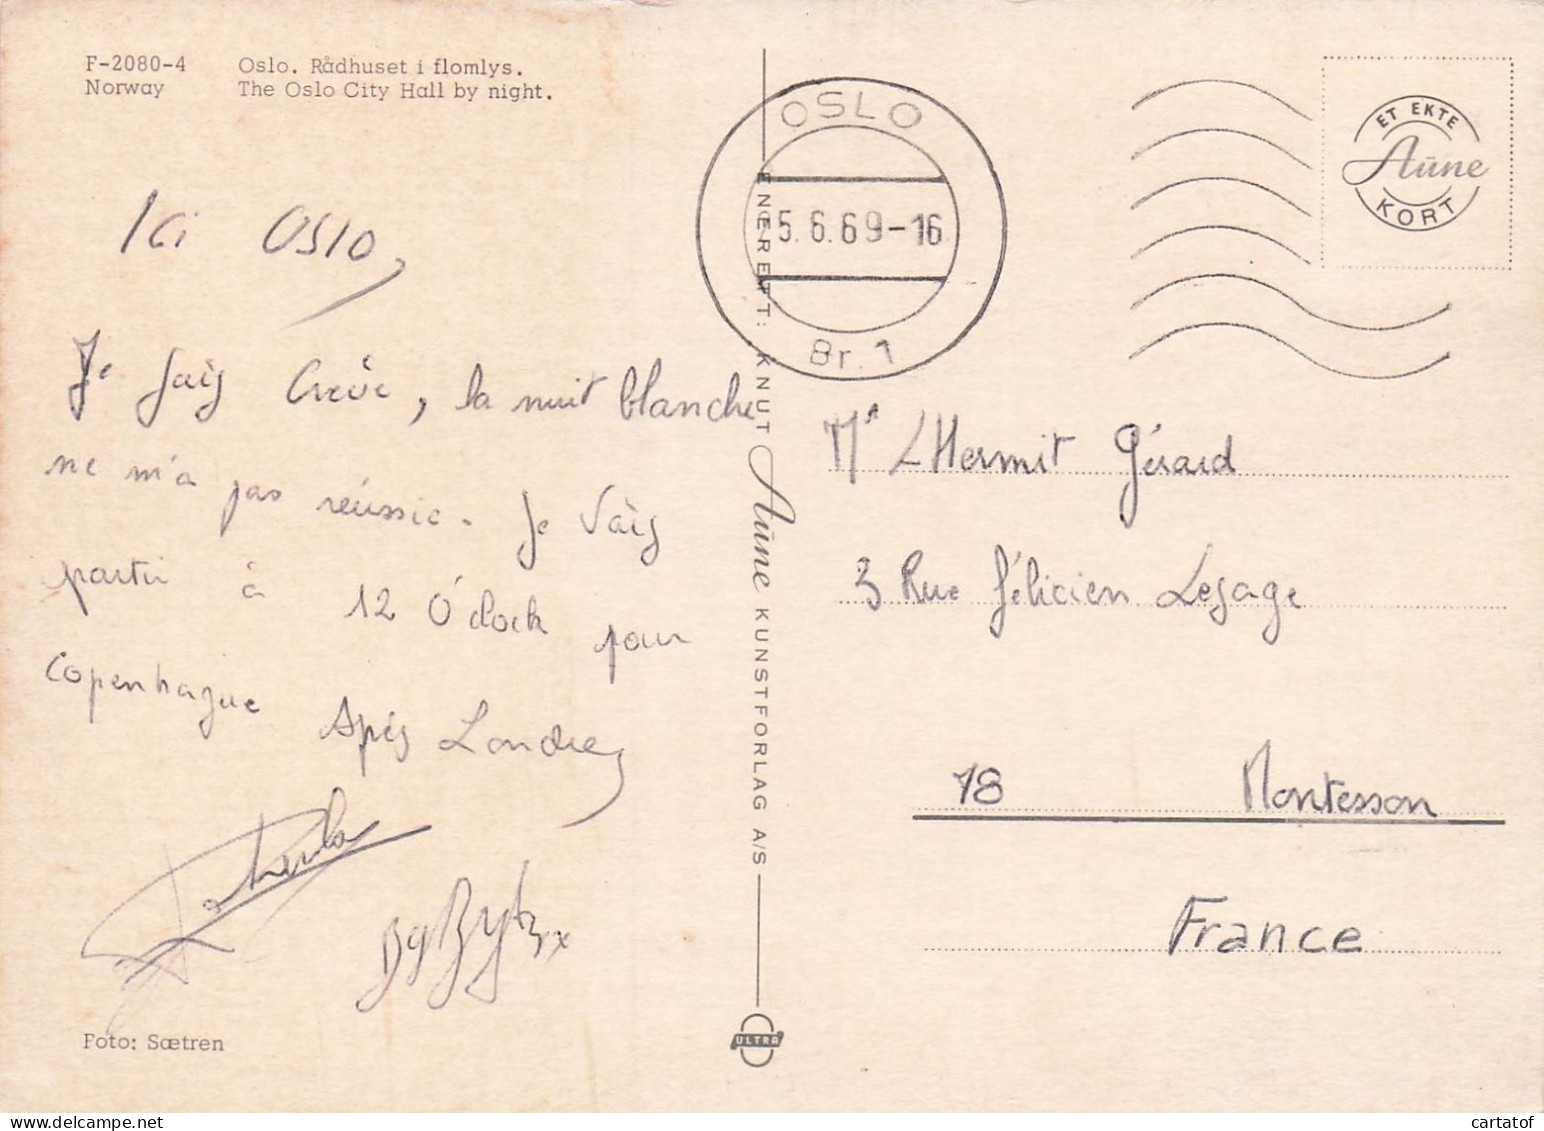 F-2080-4 Oslo. Rådhuset i flomlys.
Norway The Oslo City Hall by night.
Ici OSlO,
Je suis Crevé, la nuit blanche
ne m'a pas réussie. Je vais
partir à 12 O'clock pour
Copenhague Après Londres
Foto: Sætren
OSLO
5.6.69-16
Br. 1
ENERETT: KNUT Aüne KUNSTFORLAG A/S
ULTRA
ET EKTE
Aüne
KORT
Mr L'Hermit Gérard
3 Rue Félicien Lesage
78 Montesson
France
cartatof